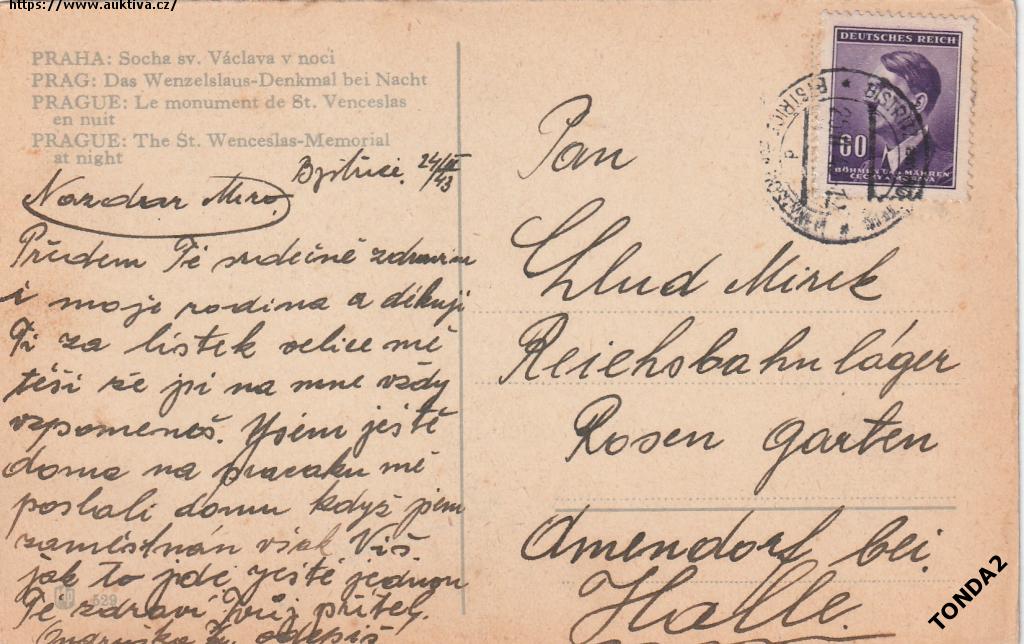 https://www.auktiva.cz/
PRAHA: Socha sv. Václava v noci
PRAG: Das Wenzelslaus-Denkmal bei Nacht
PRAGUE: Le monument de St. Venceslas
en nuit
PRAGUE: The St. Wenceslas-Memorial
at night
Bystřice. 24/ 43
Nazdar Miro.
Předem Tě srdečně zdravim
i moje rodina a děkuji
Ti za lístek velice mě
těší že jsi na mne vždy
vzpomeneš. Ysem ještě
doma na pracaku mě
poslali domu když jsem
zaměstnán však Viš
jak to jde ještě jednou
Tě zdraví Tvůj přítel.
odepiš
529
DEUTSCHES REICH
60
BÖHMEN UND MÄHREN
ČECHY A MORAVA
Pan
Chlud Mirek
Reichsbahnláger
Rosen garten
Amendorf bei.
Halle.
TONDA2